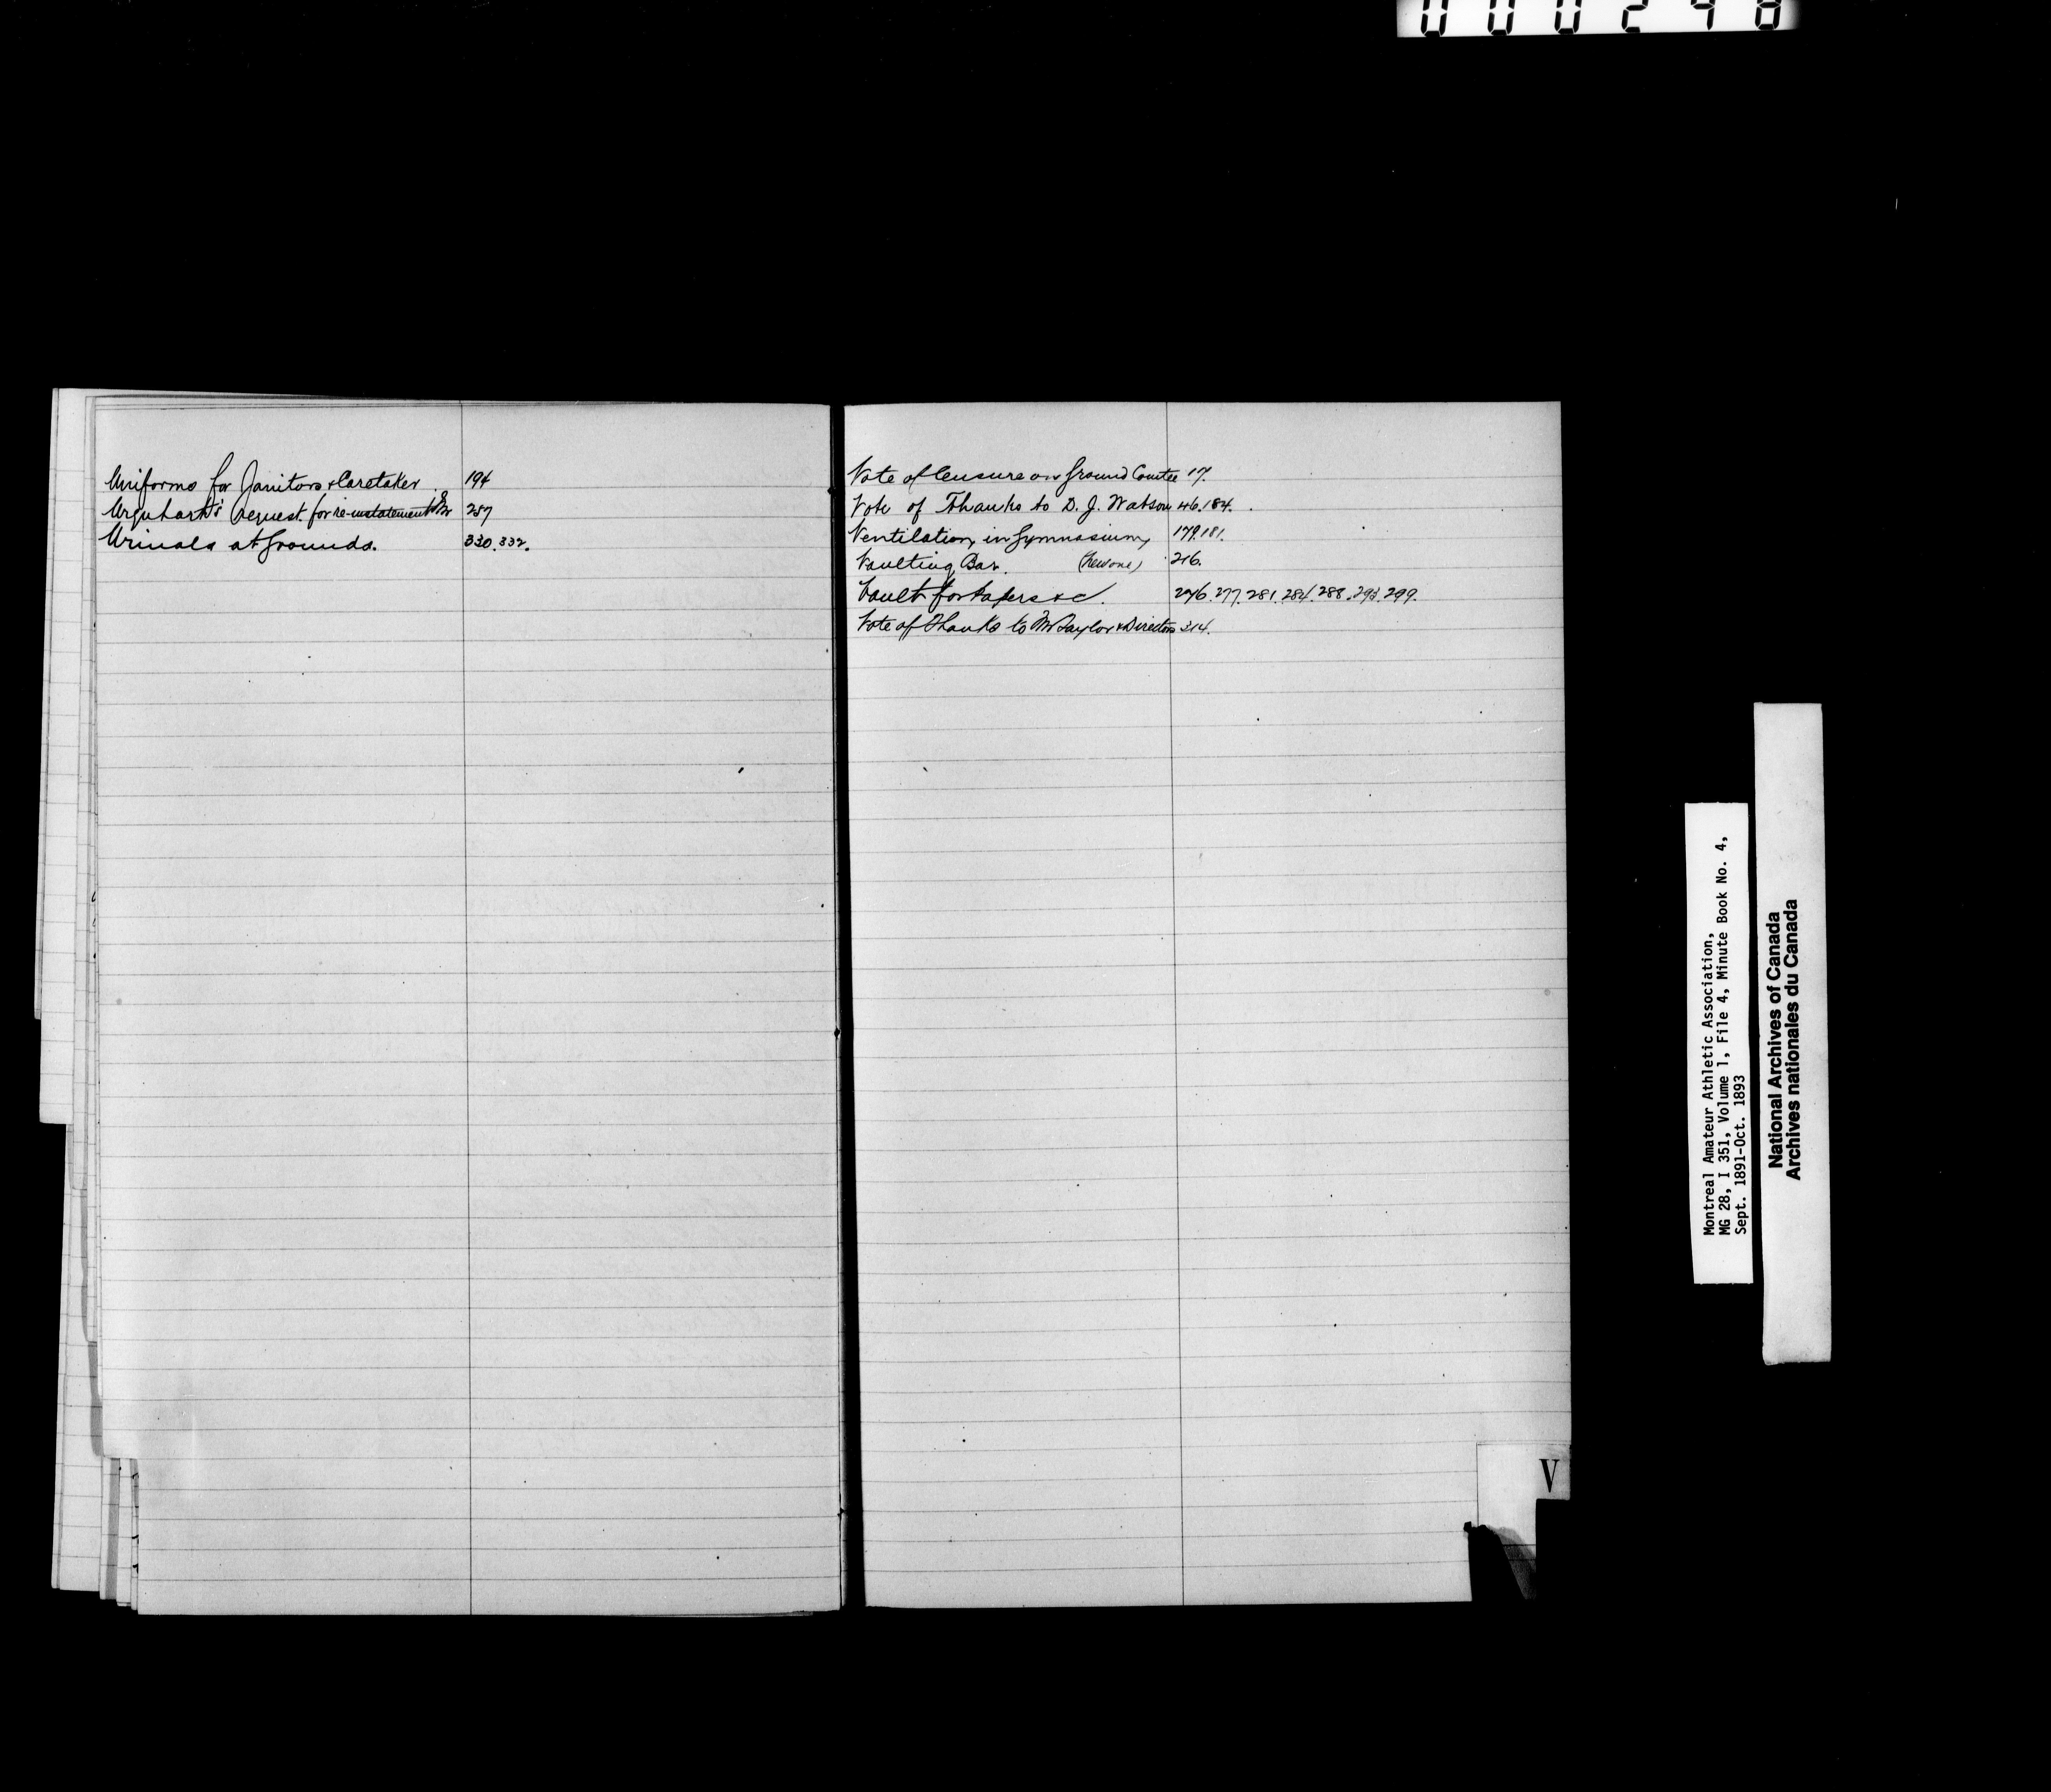 000298
Uniforms for Janitors & Caretaker. 194
Urquhart's request for re-instatement 287
Urinals at Grounds. 330.332.
Vote of Censure on Ground Comtee 17.
Vote of Thanks to D. J. Watson 46.184.
Ventilation, in Gymnasium, 179.181.
Vaulting Bar. (New one) 216.
Vault for Papers &c. 276.277.281.284.288.293.299.
Vote of Thanks to Mr Taylor & Directors 314.
V
Montreal Amateur Athletic Association,
MG 28, I 351, Volume 1, File 4, Minute Book No. 4,
Sept. 1891-Oct. 1893
National Archives of Canada
Archives nationales du Canada